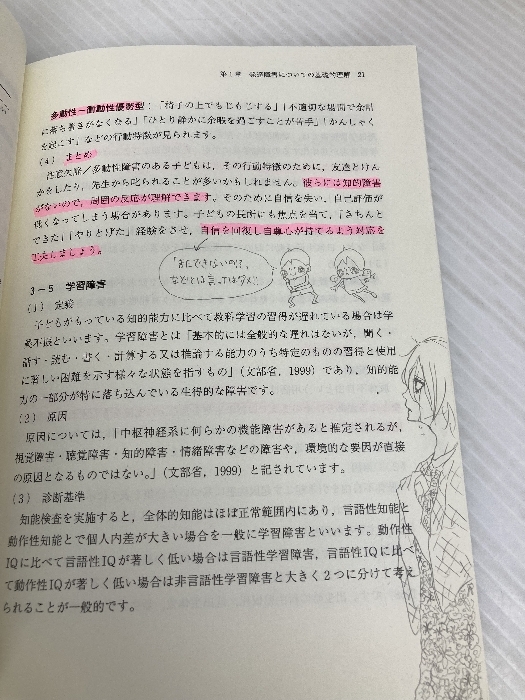 第1章 発達障害についての基礎的理解 21
多動性－衝動性優勢型：「椅子の上でもじもじする」「不適切な場面で余計
に落ち着きがなくなる」「ひとり静かに余暇を過ごすことが苦手」「かんしゃく
を起こす」などの行動特徴が見られます。
（4） まとめ
注意欠陥／多動性障害のある子どもは，その行動特徴のために，友達とけん
かをしたり，先生から叱られることが多いかもしれません。彼らには知的障害
がないので，周囲の反応が理解できます。そのために自信を失い，自己評価が
低くなってしまう場合があります。子どもの長所にも焦点を当て，「きちんと
できた」「やりとげた」経験をさせ，自信を回復し自尊心が持てるよう対応を
工夫しましょう。
「なんでできないの！？」
などとは言ってはダメ！
3－5 学習障害
（1） 定義
子どもがもっている知的能力に比べて教科学習の習得が遅れている場合は学
業不振といいます。学習障害とは「基本的には全般的な遅れはないが，聞く・
話す・読む・書く・計算する又は推論する能力のうち特定のものの習得と使用
に著しい困難を示す様々な状態を指すもの」（文部省，1999）であり，知的能
力の一部分が特に落ち込んでいる生得的な障害です。
（2） 原因
原因については，「中枢神経系に何らかの機能障害があると推定されるが，
視覚障害・聴覚障害・知的障害・情緒障害などの障害や，環境的な要因が直接
の原因となるものではない。」（文部省，1999）と記されています。
（3） 診断基準
知能検査を実施すると，全体的知能はほぼ正常範囲内にあり，言語性知能と
動作性知能とで個人内差が大きい場合を一般に学習障害といいます。動作性
IQに比べて言語性IQが著しく低い場合は言語性学習障害，言語性IQに比べ
て動作性IQが著しく低い場合は非言語性学習障害と大きく2つに分けて考え
られることが一般的です。